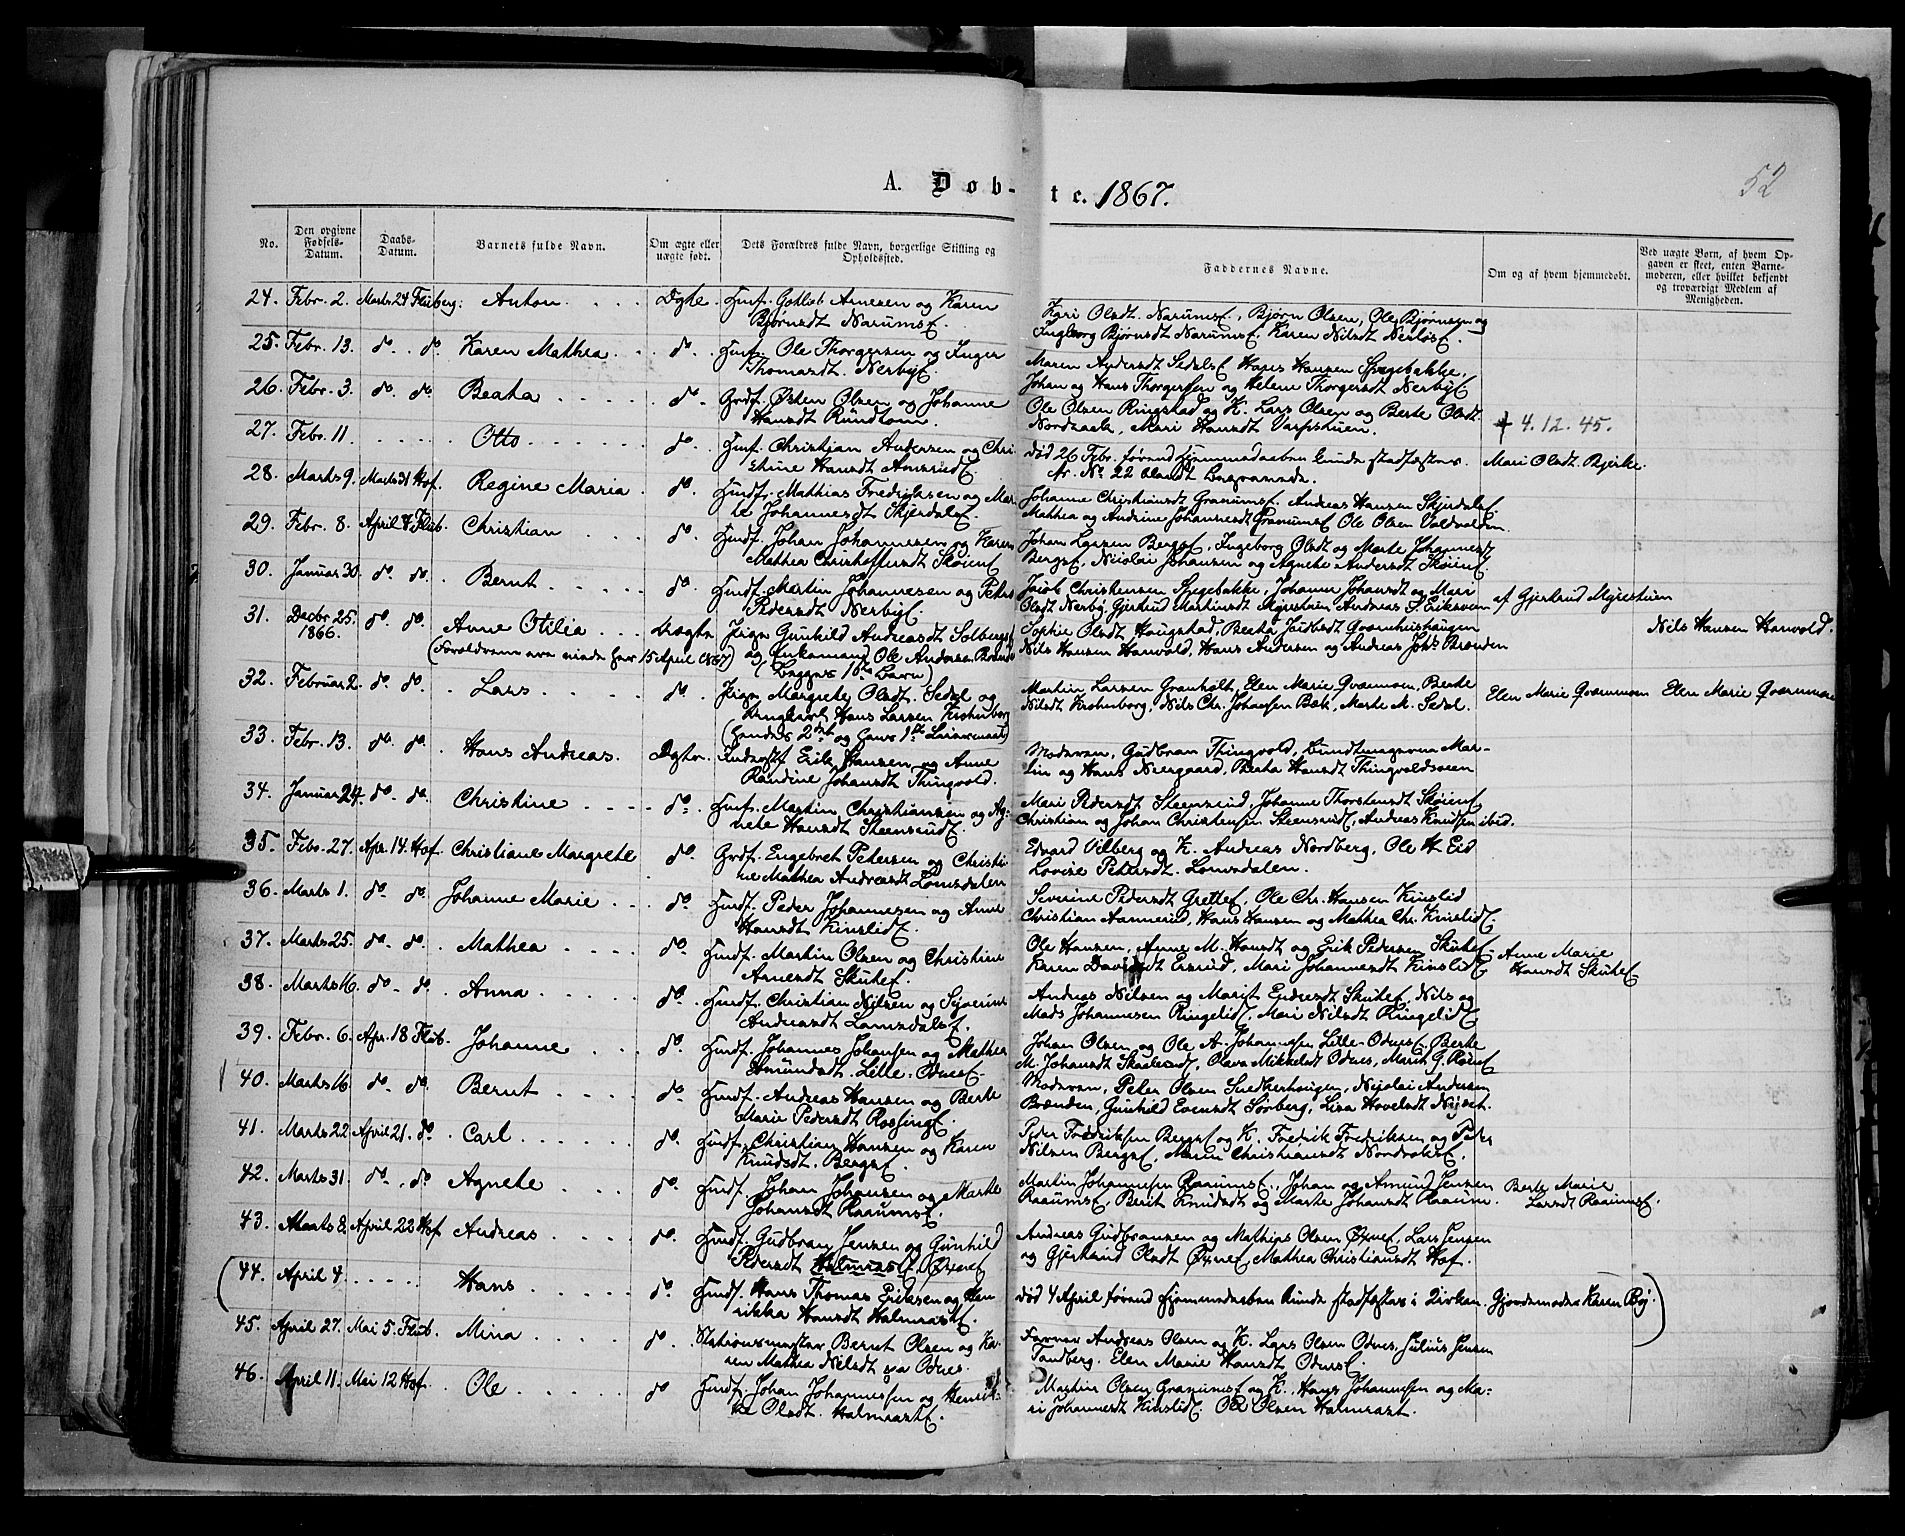 52
A. Døb-te. 1867.
No.
Den opgivne Fødsels-Datum.
Daabs-Datum.
Barnets fulde Navn.
Om ægte eller uægte født.
Dets Forældres fulde Navn, borgerlige Stilling og Opholdssted.
Faddernes Navne.
Om og af hvem hjemmedøbt.
Ved uægte Børn, af hvem Opgaven er skeet, enten Barnemoderen, eller hvilket bekjendt og troværdigt Medlem af Menigheden.
24. Febr. 2. Marts 24 Fluberg. Anton Ægte Huusf. Gotlieb Arnesen og Karen
Bjørnsdt Narums E.
Kari Olsdt. Narums E., Bjørn Olsen, Ole Bjørnsen og
Ingeborg Bjørnsdt Narums E. Karen Nilsdt
25. Febr. 13. do. do. Karen Mathea do. Ole Thorgersen og Inger
Thomasdt. Nerby E.
Maren Andersdt Sedals E. Hans Hansen Spegebakke,
Johan og Hans Thorgersen og Helene Thorgersdt Nerby E.
26. Febr. 3. do. do. Beata do. Grdf. Østen Olsen og Johanne
Hansdt Rundtom.
Ole Olsen Ringstad og K. Lars Olsen og Berte Olsdt
Nordraak, Mari Hansdt
27. Febr. 11. Otto do. Christian Andersen og Chri-
stine Hansdt
død 26 Febr. førend Hjemmedaaben kunde stadfæstes.
No 22 blandt Begravede.
† 4.12.45.
Mari Olsdt. Bjerke.
28. Marts 9. Marts 31 Hof. Regine Maria do. Mathias Fredriksen og Mar-
te Johannesdt Skjerdals E.
Johanne Christiansdt Granums E. Andreas Hansen Skjerdals E.
Mathea og Andrine Johannesdt Granums E Ole Olsen
29. Febr. 8. April 7 Flub. Christian do. Johan Johannesen og Karen
Mathea Christoffersdt Skøiens E.
Johan Larsen Bergs E, Ingeborg Olsdt og Marte Johannesdt
Bergs E, Nicolai Johansen og Agnete Andersdt Skøiens E.
30. Januar 30. do. do. Bernt do. Martin Johannesen og Petra
Pedersdt Nerby E.
Jacob Christensen Spegebakke, Johanne Johansdt og Mari
Olsdt Nerby, Gjertrud Martinsdt Andreas S. Eriksveen
af Gjertrud
31. Decbr 25. 1866. do. do. Anne Otilia Uægte Pigen Gunhild Andreasdt Solbergs E
og Ole Andersen
15 April 1867)
(Begges 1ste Barn)
Sophie Olsdt Haugstad, Beata
Nils Hansen Hanvold, Hans Andersen og Andreas Johs Brænden
Nils Hansen Hanvold.
32. Februar 2. do. do. Lars do. Pigen Margrete Olsdt. Sedal og
Ungkarl Hans Larsen Kronborg
(hendes 2det og hans 1ste Leiermaal)
Martin Larsen Granholt, Elen Marie Qværnmoen, Berte
Nilsdt Kronborg, Nils Chr. Johansen Bæk, Marte M. Sedal.
Elen Marie Qværnmoen
Elen Marie Qværnmoen
33. Febr. 13. do. do. Hans Andreas. Ægte. Erik Hansen og Anne
Randine Johansdt Thingvold.
Moderen, Gudbran Thingvold, Bundtmagerne Mar-
tin og Hans Neergaard, Berta Hansdt Thingvoldsveen
34. Januar 24. do. do. Christine do. Martin Christiansen og Ag-
nete Hansdt Steensrud E.
Mari Pedersdt Steensrud, Johanne Thorstensdt Skøiens E.
Christian og Johan Christensen Steensrud E, Andreas Knudsen ibid.
35. Febr. 27. Apr. 14. Hof. Christiane Margrete do. Grdf. Engebret Petersen og Christi-
ne Mathea Andreasdt Lomsdalen
Edvard Vilberg og K. Andreas Nordberg, Ole H. Eid
Lovise Petersdt. Lomsdalen.
36. Marts 1. do. do. Johanne Marie do. Peder Johannesen og Anne
Hansdt Kinslid E.
Severine Pedersdt Grette E, Ole Chr. Hansen Kinslid
Christian Aannerud, Hans Hansen og Mathea Chr. Kinslid E.
37. Marts 25. do. do. Mathea do. Martin Olsen og Christine
Arnesdt Skute E.
Ole Hansen, Anne M. Hansdt og Erik Pedersen Skute E
Karen Davidsdt Ersrud, Mari Johannesdt Kinslid E
Anne Marie
Hansdt Skute E
38. Marts 16. do. do. Anna do. Christian Nilsen og Syverine
Andreasdt Lomsdals E.
Andreas Nilsen og Marit Endresdt Skute E, Nils og
Mads Johannesen Ringelid E, Mari Nilsdt Ringelid E
39. Febr. 6. Apr. 18 Flub. Johanne do. Johannes Johansen og Mathea
Amundsdt. Lille-Odnes E.
Johan Olsen og Ole A. Johannsen Lille-Odnes E, Berte
M. Johansdt Olava Mikkelsdt Odnes, Marit G.
40. Marts 16. do. do. Bernt do. Andreas Hansen og Berte
Marie Pedersdt Røssing E.
Moderen, Peter Olsen Snedkerhaugen, Nicolai Andersen
Brænden, Gunhild Evensdt Sørberg, Lisa Hovelsdt
41. Marts 22 April 21. do. Carl do. Christian Hansen og Karen
Knudsdt. Bergs E.
Peder Fredriksen Bergs E og K. Fredrik Fredriksen og Peder
Nilsen Bergs E, Maren Christiansdt Nordvolds E.
42. Marts 31 do. do Agnete do. Johan Johansen og Marte
Johansdt Raaums E.
Martin Johannesen Raaums E, Johan og Amund Jensen
Raaums E, Berit Knudsdt og Marte Johansdt Raaum.
Berte Marie
Larsdt Raaums E.
43. Marts 8. April 22 Hof Andreas do. Gudbran Jensen og Gunhild
Pedersdt Halmrast E. Øxne E
Andreas Gudbransen og Mathias Olsen Øxne E, Lars Jensen
og Gjertrud Olsdt Øxne E, Mathea Christiansdt Hof.
44. April 4 Hans do. Hans Thomas Eriksen og Hen-
rikka Hansdt Halmrast E.
død 4 April førend Hjemmedaaben kunde stadfæstes i Kirken. Gjordemoder Karen Bøj.
45. April 27. Mai 5. Flub. Mina do. Stationsmester Bernt Olsen og Ka-
ren Mathea Nilsdt paa Odnes.
Farver Andreas Olsen og K. Lars Olsen Odnes, Julius Jensen
Tandberg. Elen Marie Hansdt Odnes E.
46. April 11. Mai 12 Hof. Ole do Johan Johannessen og Henrik-
ke Olsdt. Halmrast E.
Martin Olsen Granums E og K., Hans Johannesen og Ma-
ri Johannesdt Kinslid E. Ole Olsen Halmrast.